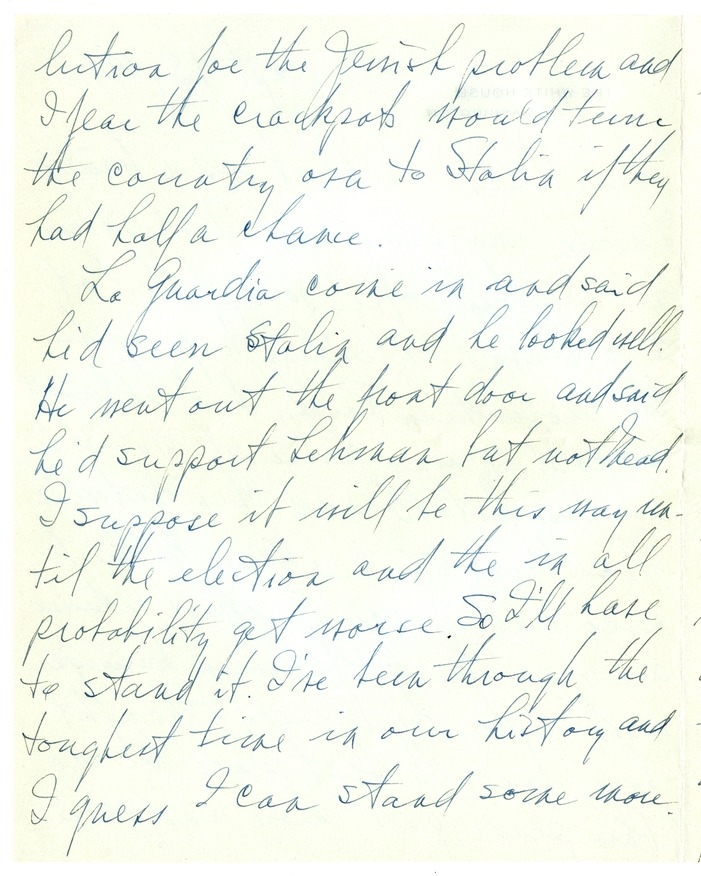 lution for the Jewish problem and
I fear the crackpots would turn
the country over to Stalin if they
had half a chance.
La Guardia come in and said
he'd seen Stalin and he looked well.
He went out the front door and said
he'd support Lehman but not Mead.
I suppose it will be this way un-
til the election and the in all
probability get worse. So I'll have
to stand it. I've been through the
toughest time in our history and
I guess I can stand some more.